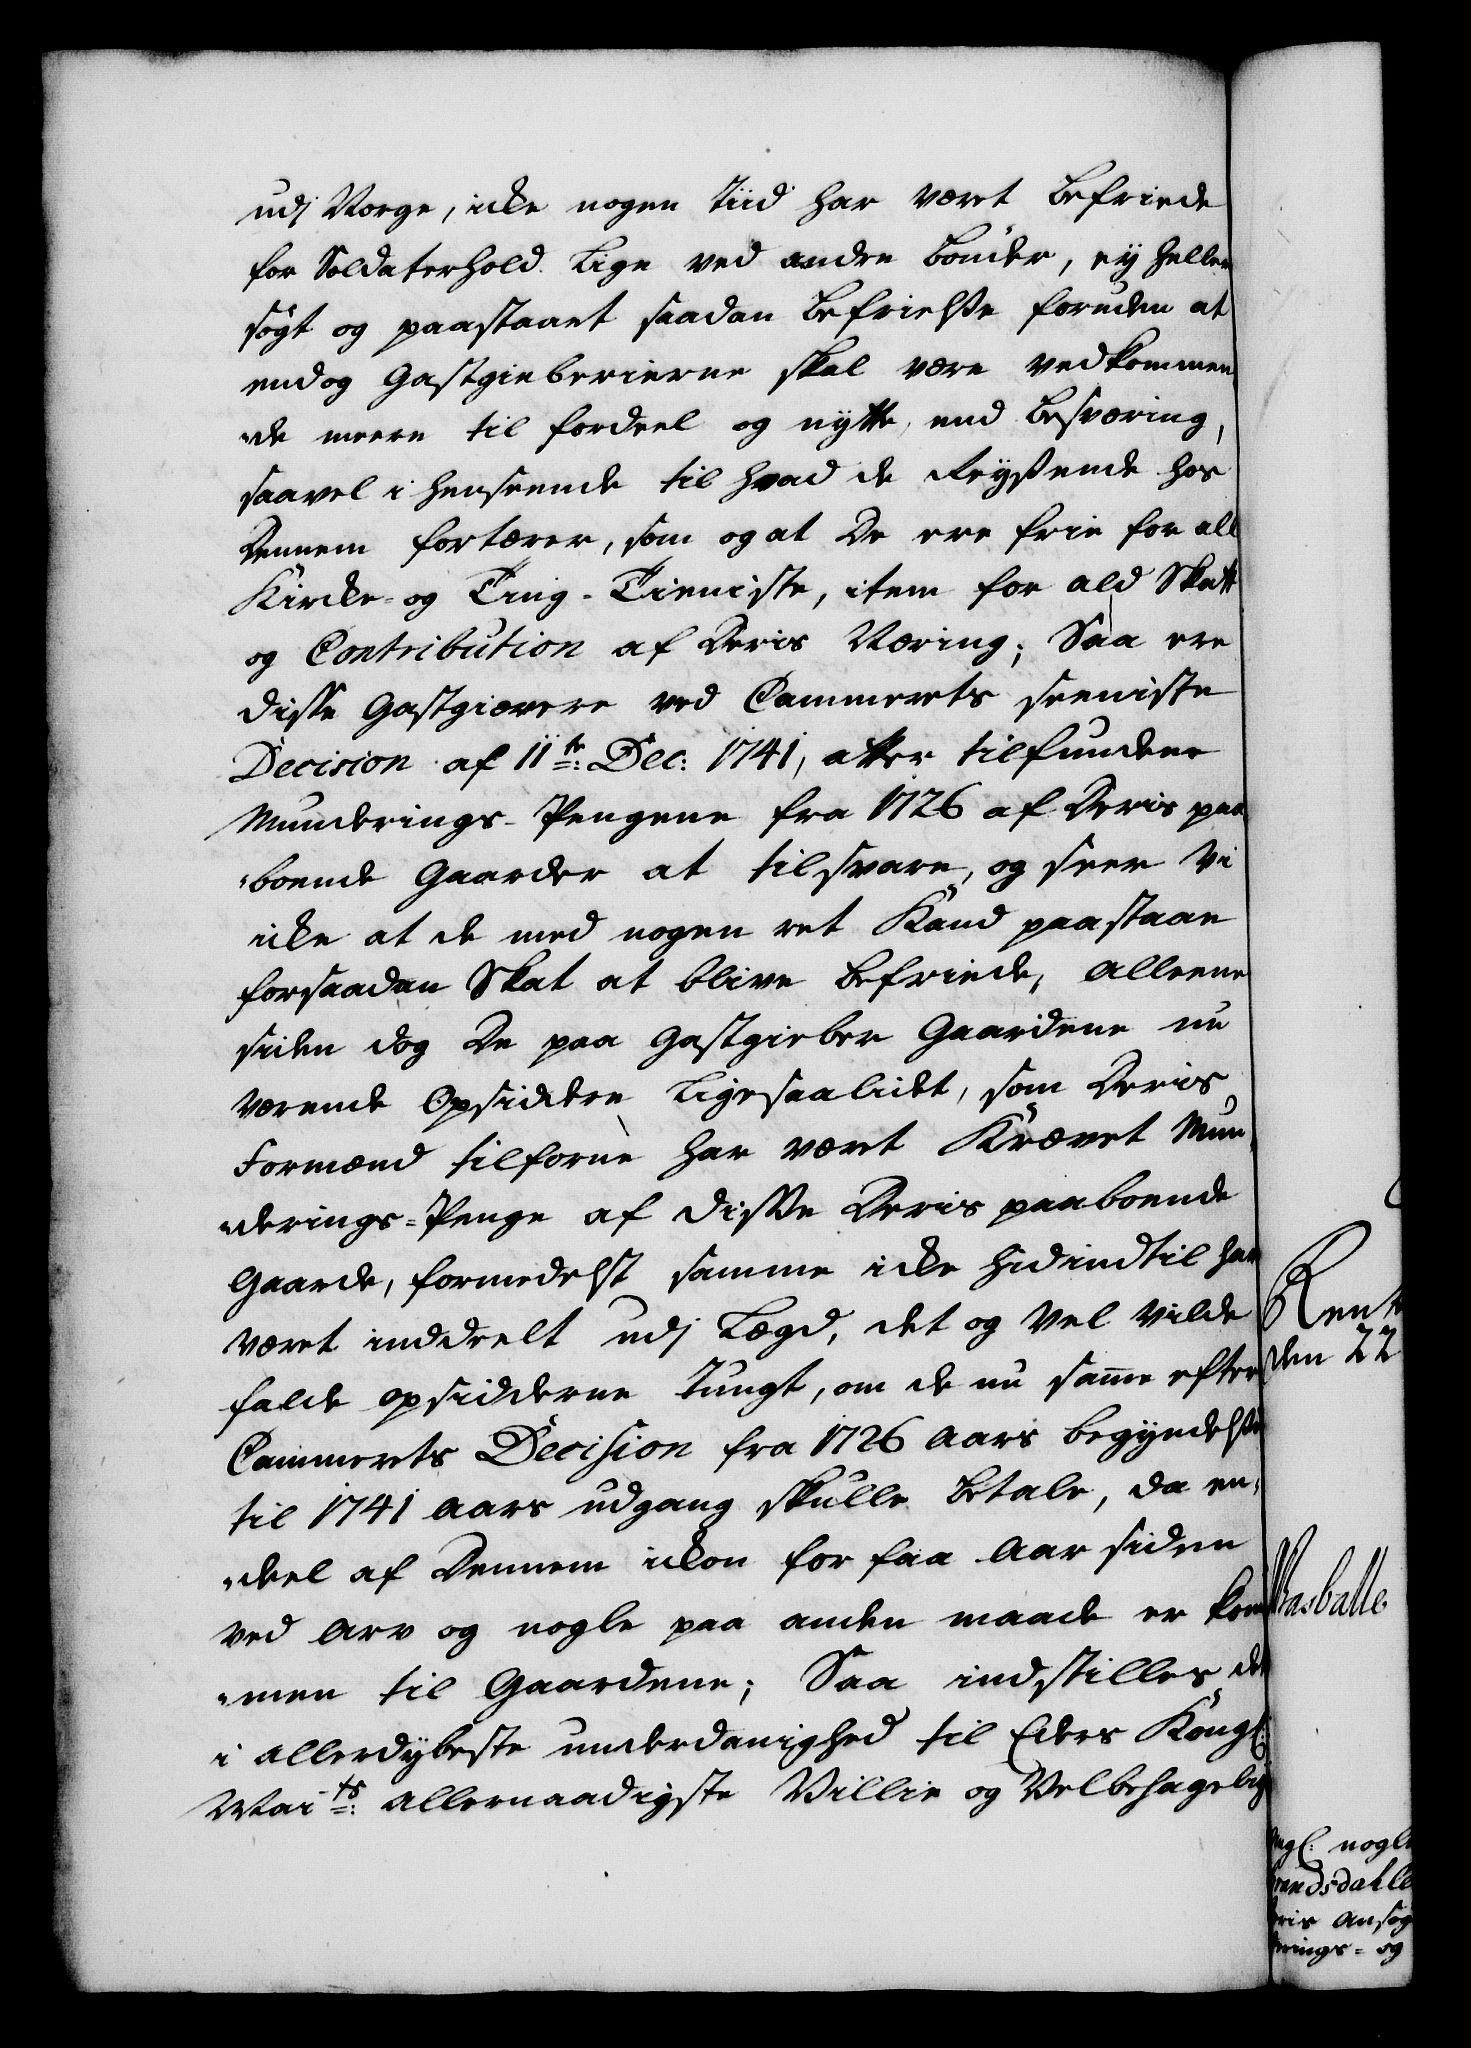 udj Norge, icke nogen Tiid har været Befriede
for Soldaterhold lige ved andre bönder, ey heller
sögt og paastaaet saadan Befrielsse foruden at
endog Gastgieberierne skal være vedkommen
de meere til fordeel og nytte, end Besværing,
saavel i henseende til hvad de Reyssende hos
Dennem fortærer, som og at De ere frie for all
Kircke- og Ting-Tieniste, item for ald Skatt
og Contribution af Deris Næring; Saa ere
disse Gastgiævere ved Cammerets seeniste
Decision af 11te: Dec: 1741, atter tilfunden
Munderings-Pengene fra 1726 af Deris paa
boende Gaarder at tilsvare, og seer Vi
icke at de med nogen ret Kand paastaae
forsaadan Skat at blive befriede, alleene
siden dog De paa Gastgieber Gaardene nu
værende Opsiddere ligesaalidet, som Deris
Formænd tilforne har været Krævet Mun
derings-Penge af disse Deris paaboende
Gaarde, formedelst samme icke hidindtil har
været inddeelt udj Lægd, det og vel vilde
falde opsidderne Tungt, om de nu samme efter
Cammerets Decision fra 1726 aars begyndelse
til 1741 aars udgang skulle betale, da en
deel af Dennem ickon for faa aar siden
ved arv og nogle paa anden maade er kom
men til Gaardene; Saa indstilles det
i allerdybeste underdanighed til Eders Kongl:
Maits: allernaadigste Villie og Velbehagelig
Rent
den 22
ngl: nogle
randsdahle
eris ansøg
erings- og